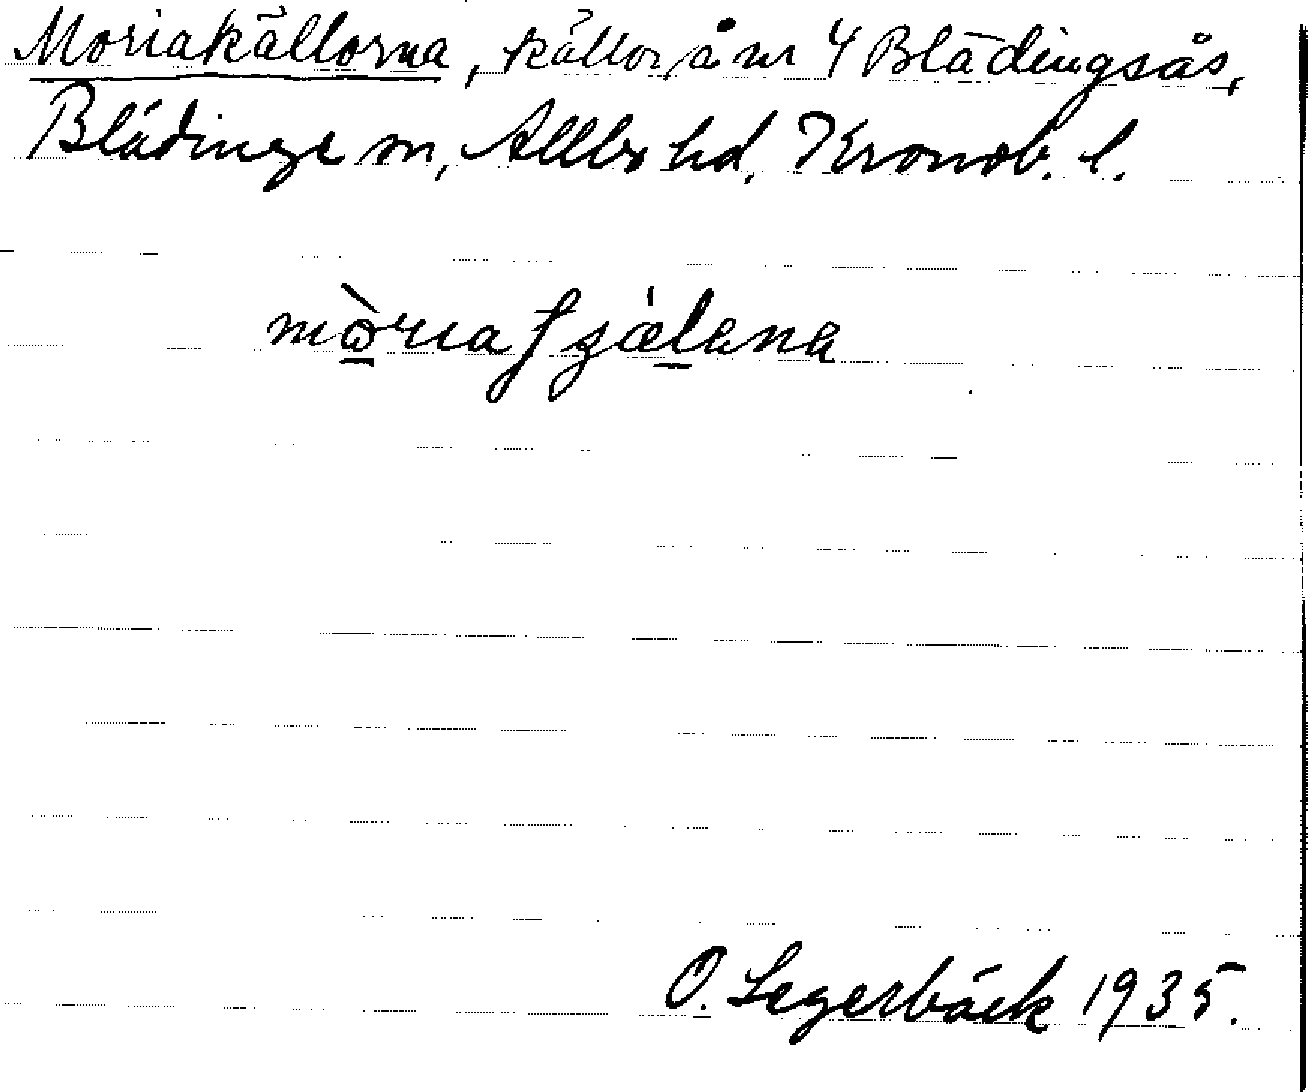 Moriakällorna, källor å nr 4 Blädingsås,
Blädinge sn, Allbo hd, Kronob. l.
O. Segerbäck 1935.